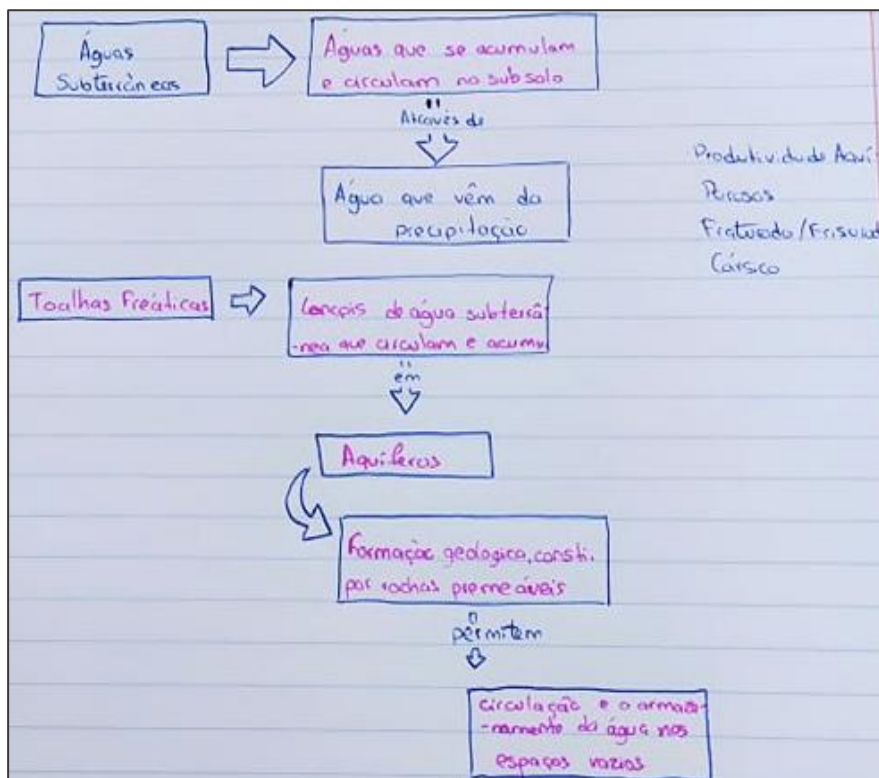 Águas
Subterrâneas
Águas que se acumulam
e circulam no subsolo
Através de
Água que vêm da
precipitação
Produtividade Aquí
Porosos
Fraturado/Fisurad
Cársico
Toalhas Freáticas
Lençóis de água subterrâ
-nea que circulam e acumu
em
Aquíferos
Formação geologica, consti.
por rochas premeáveis
permitem
circulação e o armaze
-namento da água nos
espaços vazios